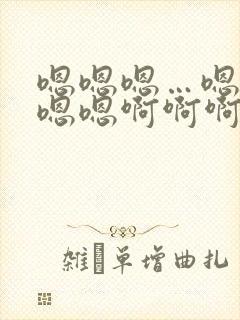 嗯嗯嗯…嗯
嗯嗯啊啊啊
雜單增曲扎